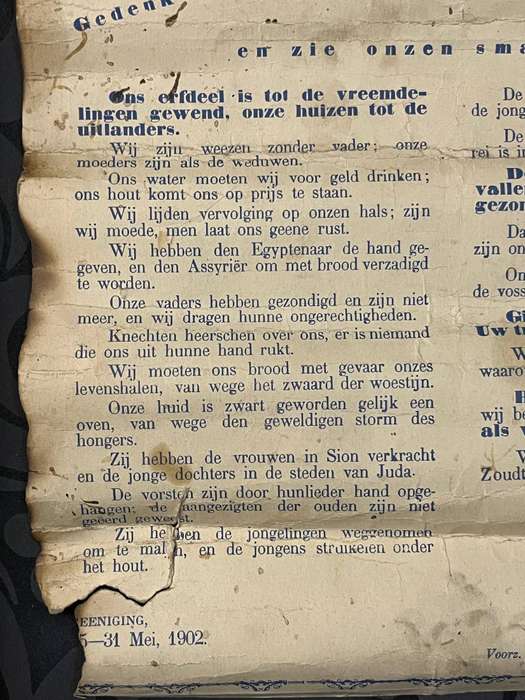 Gedenk
en zie onzen sma
Ons erfdeel is tot de vreemde-
lingen gewend, onze huizen tot de
uitlanders.
Wij zijn weezen zonder vader; onze
moeders zijn als de weduwen.
Ons water moeten wij voor geld drinken;
ons hout komt ons op prijs te staan.
Wij lijden vervolging op onzen hals; zijn
wij moede, men laat ons geene rust.
Wij hebben den Egyptenaar de hand ge-
geven, en den Assyriër om met brood verzadigd
te worden.
Onze vaders hebben gezondigd en zijn niet
meer, en wij dragen hunne ongerechtigheden.
Knechten heerschen over ons, er is niemand
die ons uit hunne hand rukt.
Wij moeten ons brood met gevaar onzes
levenshalen, van wege het zwaard der woestijn.
Onze huid is zwart geworden gelijk een
oven, van wege den geweldigen storm des
hongers.
Zij hebben de vrouwen in Sion verkracht
en de jonge dochters in de steden van Juda.
De vorsten zijn door hunlieder hand opge-
hangen; de aangezigten der ouden zijn niet
geëerd geweest.
Zij he ben de jongelingen weggenomen
om te mal n, en de jongens struikelen onder
het hout.
EENIGING,
5—31 Mei, 1902.
De
de jong
De
rei is i
D
valle
gezon
Da
zijn on
On
de voss
Gi
Uw t
W
waaro
H
wij be
als v
V
Zoudt
Voorz.